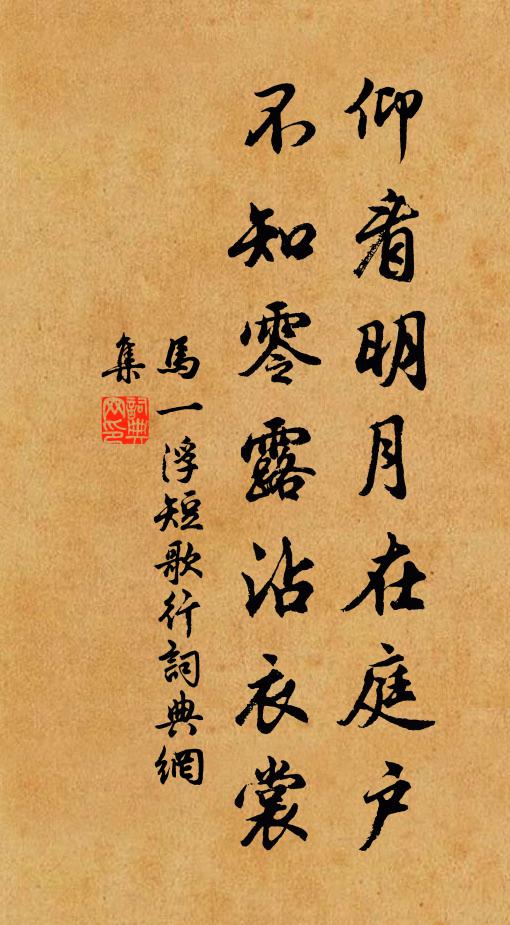 仰看明月在庭户
不知零露沾衣裳
馬一浮短歌行詞典網
集
詞典
网印